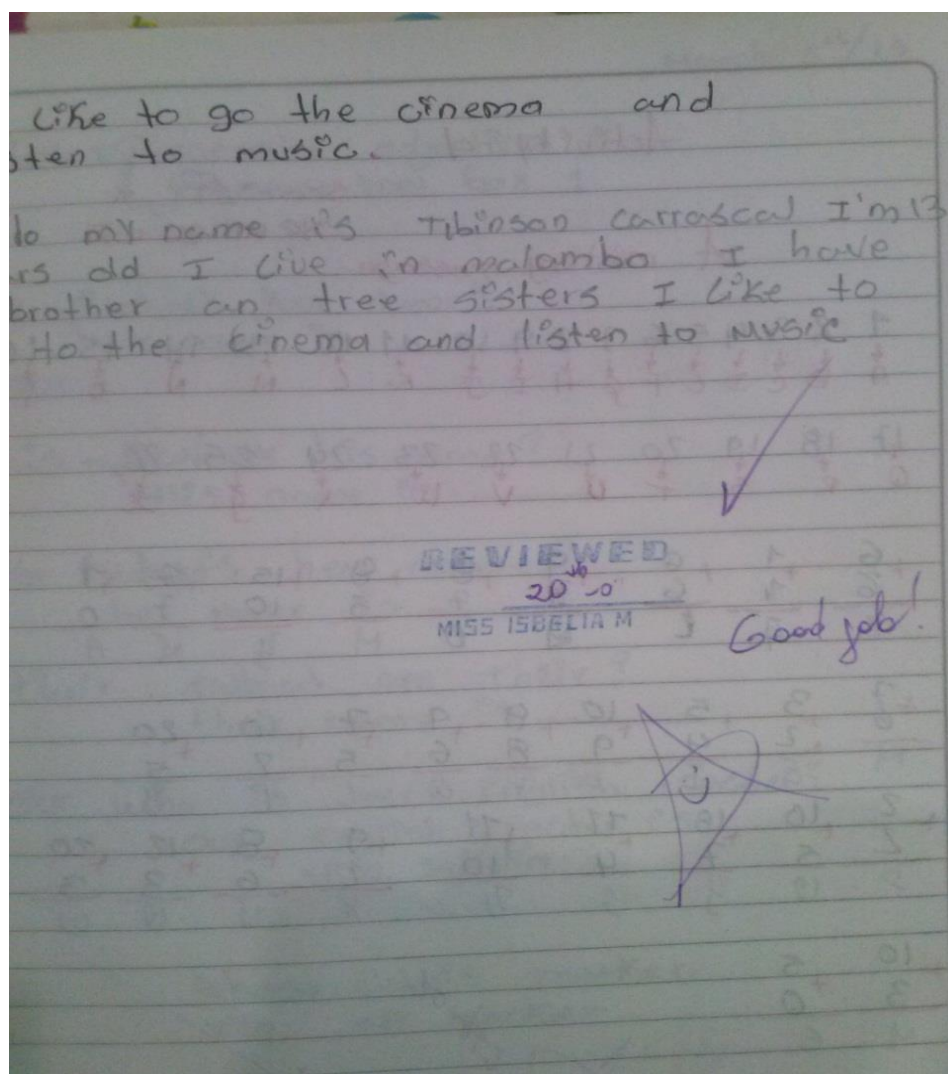 Like to go the cinema and
sten to music.
lo my name is Tibinson Carrascal I'm 13
rs old I Live in malambo I have
brother an tree sisters I Like to
to the cinema and listen to music
REVIEWED
20
MISS ISBELIA M
Good job!